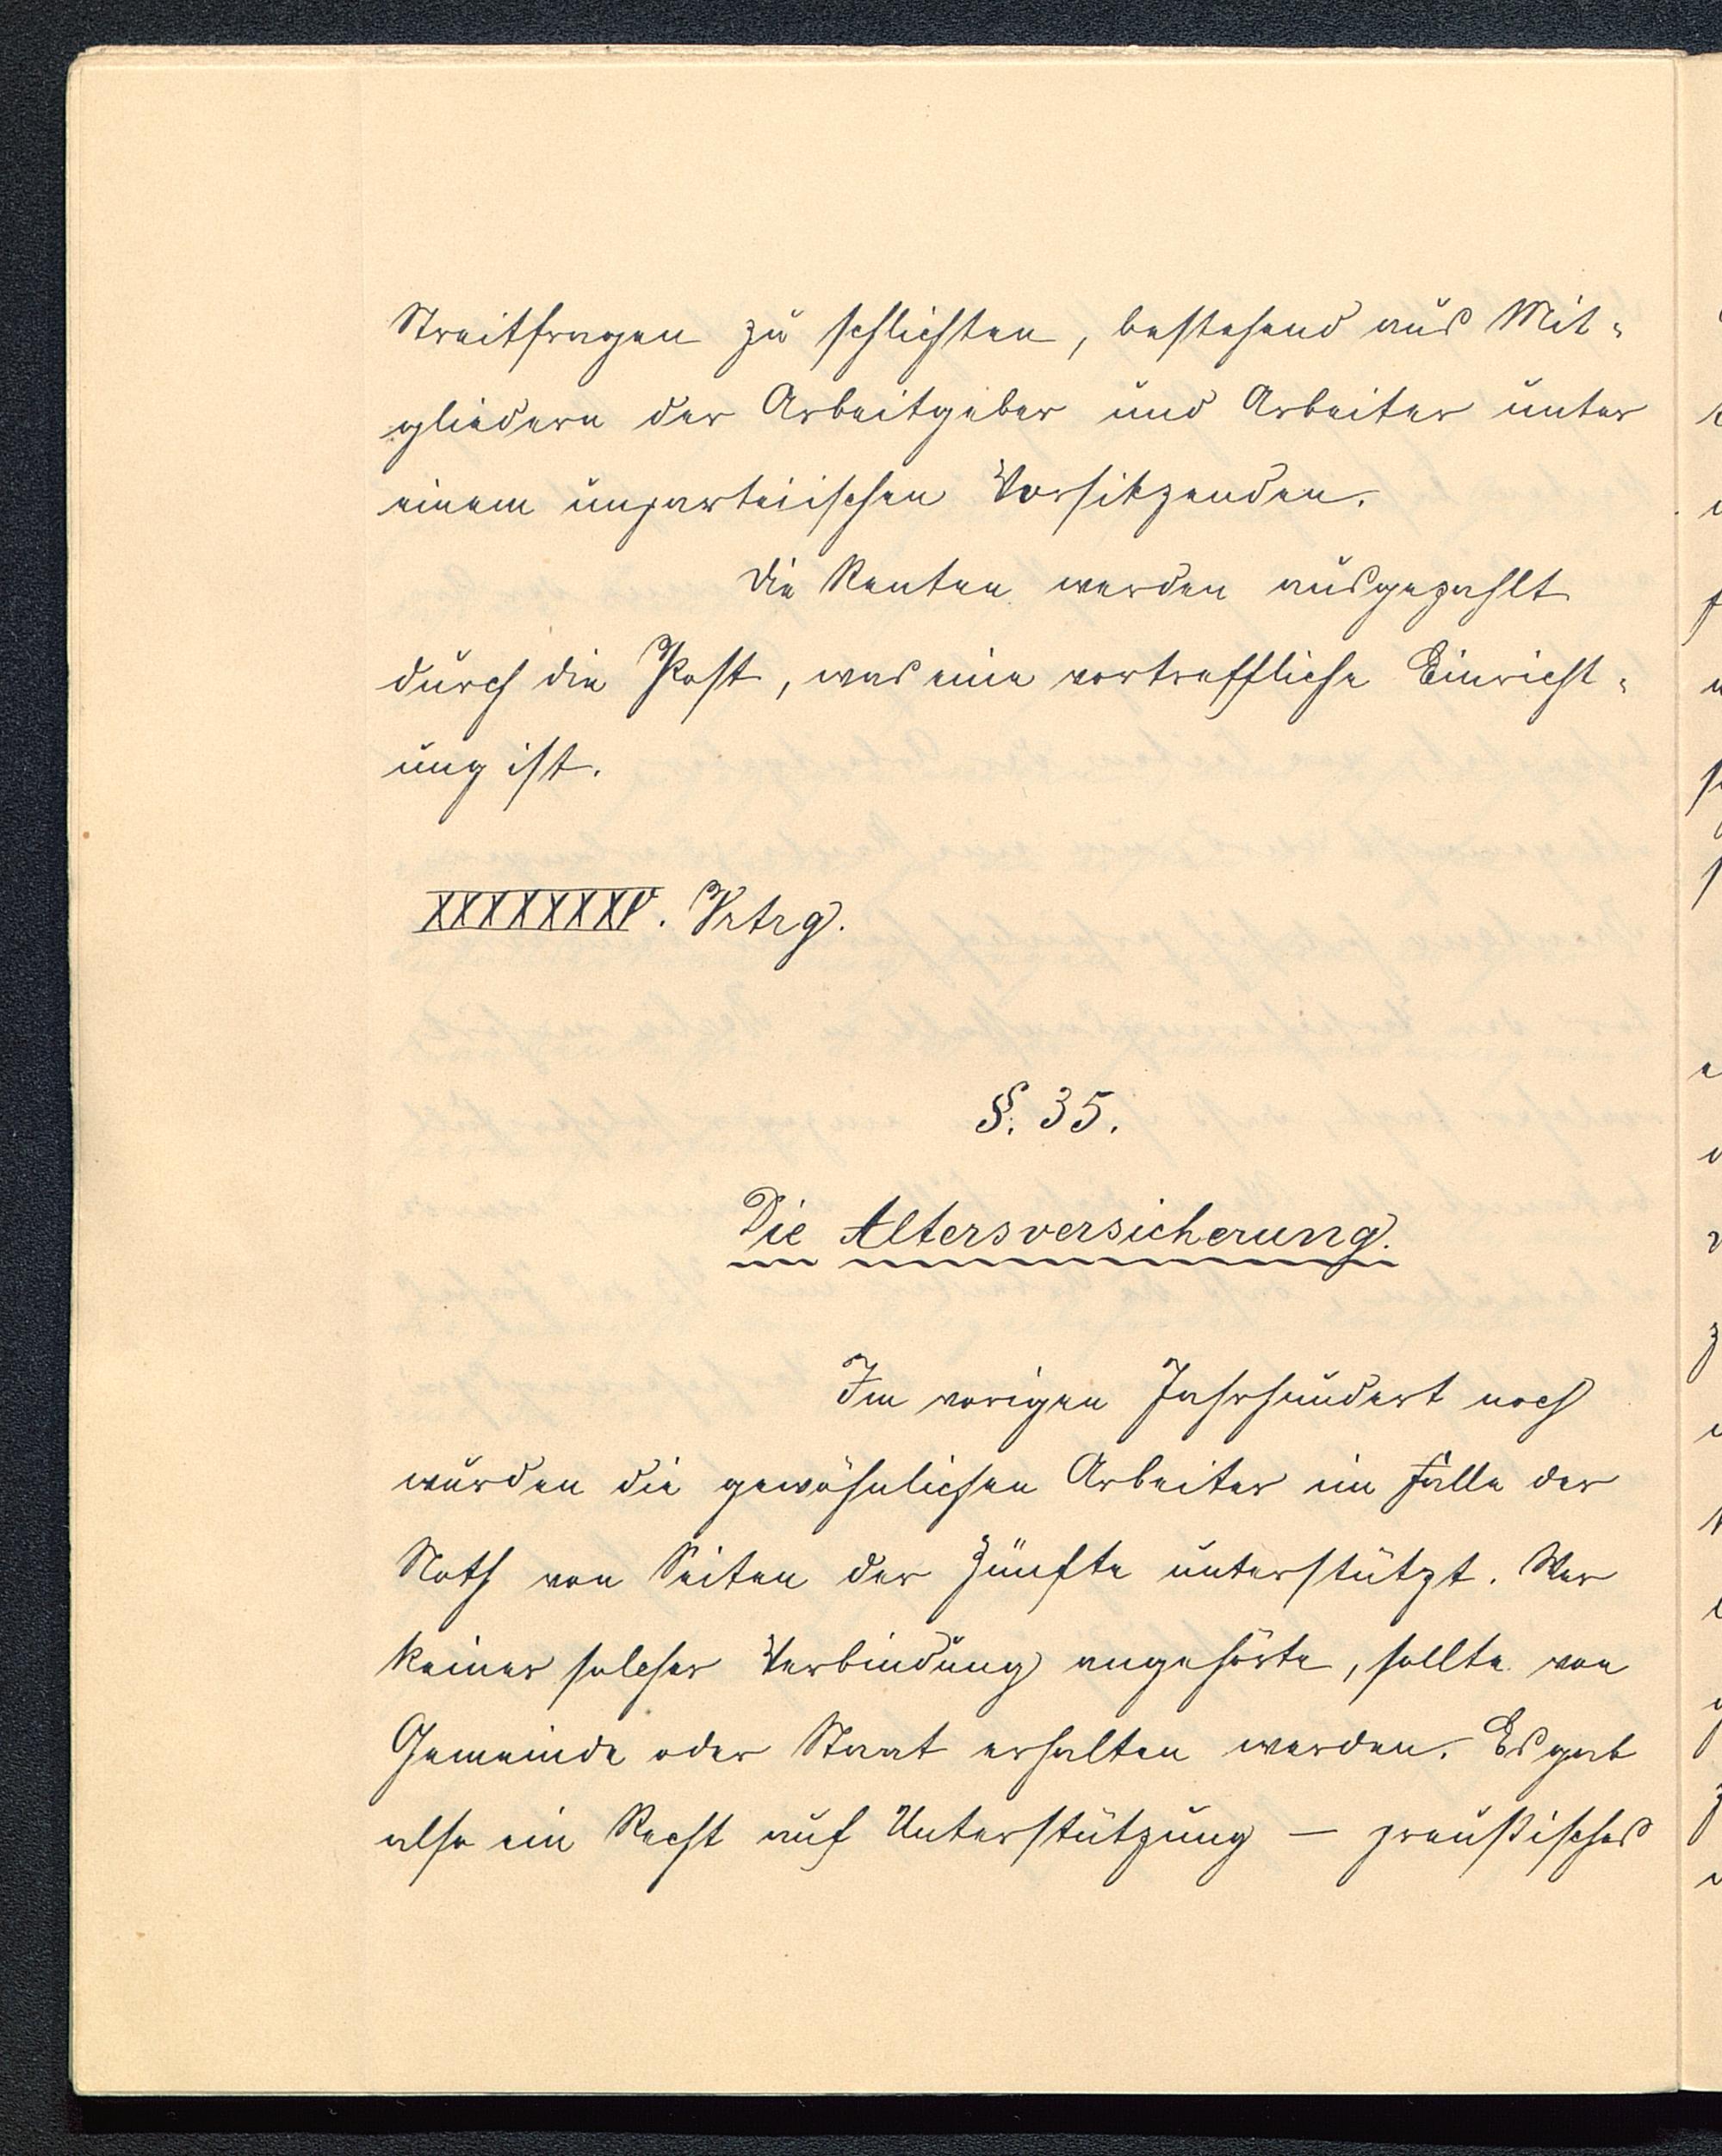 Streitfragen zu schlichten, bestehend aus Mit-
gliedern der Arbeitgeber und Arbeiter unter
einem unparteiischen Vorsitzenden.
Die Renten werden ausgezahlt
durch die Post, was eine vortreffliche Einricht-
ung ist.
XXXXXXXXV. Vrtrg.
§. 35.
Die Altersversicherung.
Im vorigen Jahrhundert noch
wurden die gewöhnlichen Arbeiter im Falle der
Noth von Seiten der Zünfte unterstützt. Wer
keiner solcher Verbindung angehörte, sollte von
Gemeinde oder Staat erhalten werden. Es gab
also ein Recht auf Unterstützung — preußisches